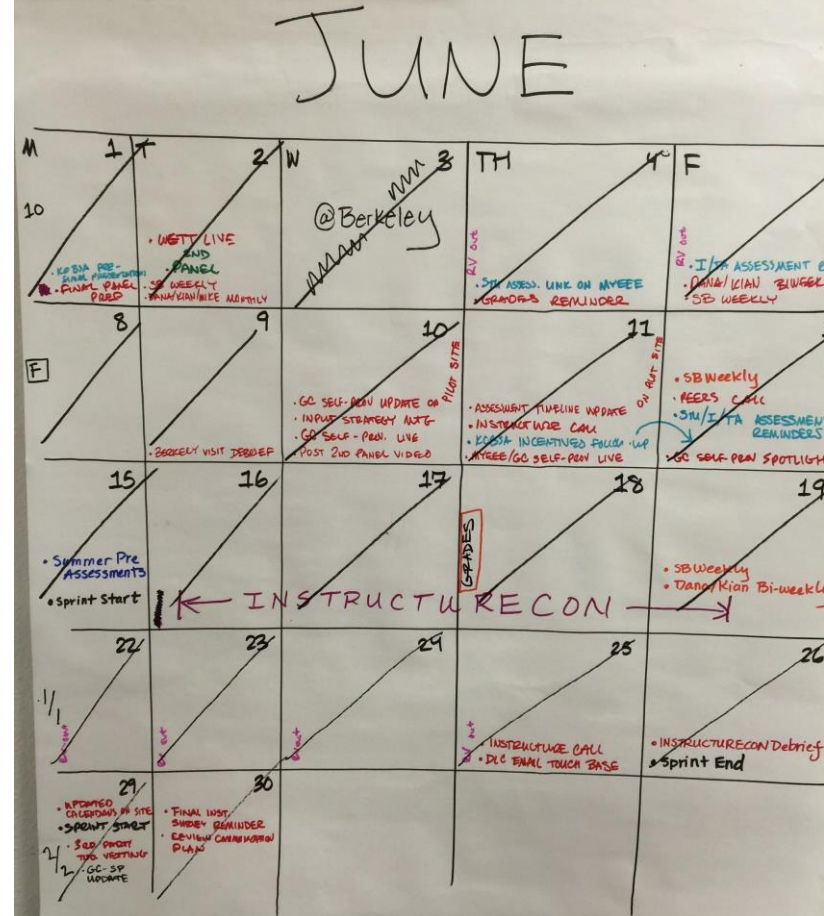 JUNE
M 1
T 2
W 3
TH 4
F
10
• KOBSA PRE-
FINAL PRESENTATION
• FINAL PANEL
PREP
• WETT LIVE
2ND
• PANEL
• SB WEEKLY
DANA/KIAN/MIKE MONTHLY
@Berkeley
RV out
• STU ASSESS. LINK ON MYEEE
• GRADES REMINDER
RV out
• I/TA ASSESSMENT
• DANA/KIAN BIWEEK
• SB WEEKLY
8
F
9
• BERKELY VISIT DEBRIEF
10
• GC SELF-PROV UPDATE ON
PILOT SITE
• INPUT STRATEGY MTG
• GC SELF-PROV. LIVE
• POST 2ND PANEL VIDEO
11
• ASSESSMENT TIMELINE UPDATE
ON PILOT SITE
• INSTRUCTURE CALL
• KOBSA INCENTIVES FOLLOW-UP
• MYEEE/GC SELF-PROV LIVE
• SB Weekly
• PEERS CALL
• STU/I/TA ASSESSMENT
REMINDERS
• GC SELF PROV SPOTLIGH
15
• Summer Pre
Assessments
• Sprint Start
16
17
18
GRADES
19
• SB Weekly
• Dana/Kian Bi-weekl
INSTRUCTURECON
22
1/1
23
RV out
24
RV out
25
RV out
• INSTRUCTURE CALL
• DLC EMAIL TOUCH BASE
26
• INSTRUCTURECON Debrief
• Sprint End
29
• UPDATED
CALENDARS ON SITE
• SPRINT START
• 3RD PARTY
TOOL VETTING
• GC-SP
UPDATE
30
• FINAL INST.
SURVEY REMINDER
• REVIEW COMMUNICATION
PLAN